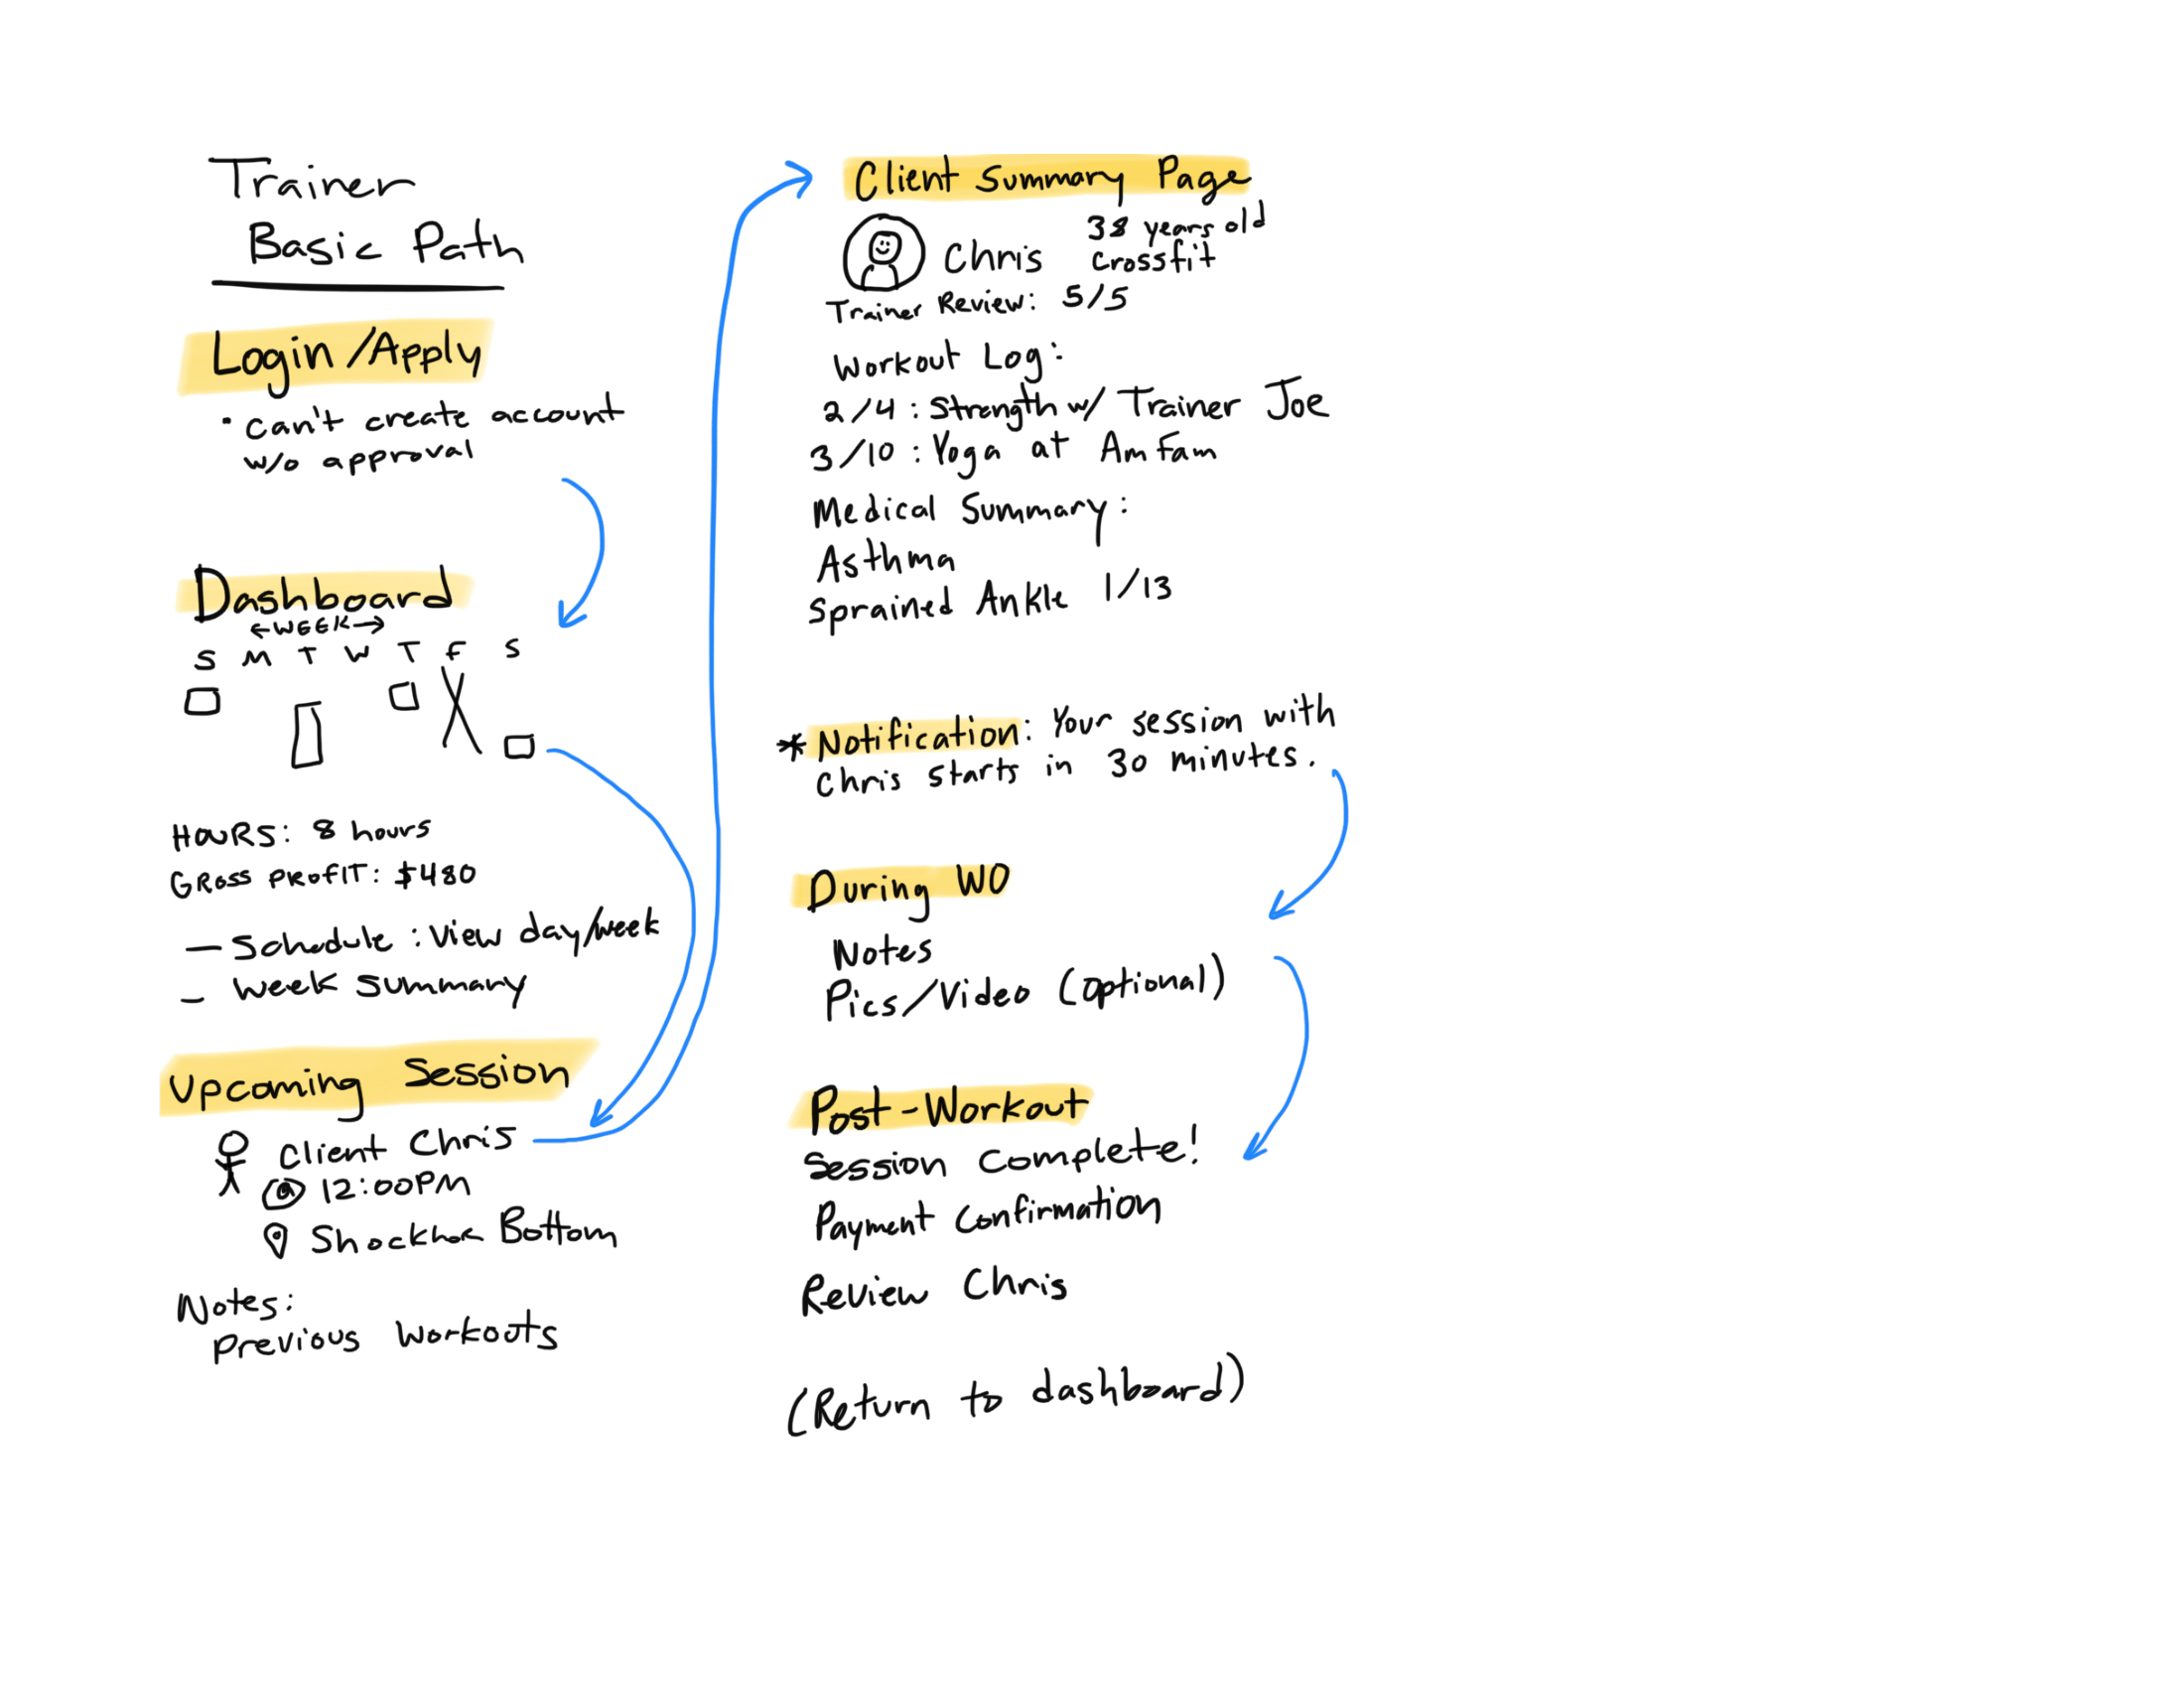 Trainer
Basic Path
Login/Apply
· can't create account
w/o approval
Dashboard
←WEEK→
S M T W T F S
HOURS: 8 hours
GROSS PROFIT: $480
— Schedule: View day/week
— Week summary
Upcoming Session
Client Chris
@ 12:00PM
Shockhoe Bottom
Notes:
Previous workouts
Client Summary Page
38 years old
Chris crossfit
Trainer Review: 5/5
Workout Log:
2/4: Strength w/ Trainer Joe
3/10: Yoga at AmFam
Medical Summary:
Asthma
Sprained Ankle 1/13
* Notification: Your session with
Chris starts in 30 minutes.
During WO
Notes
Pics/Video (optional)
Post-Workout
Session Complete!
Payment Confirmation
Review Chris
(Return to dashboard)